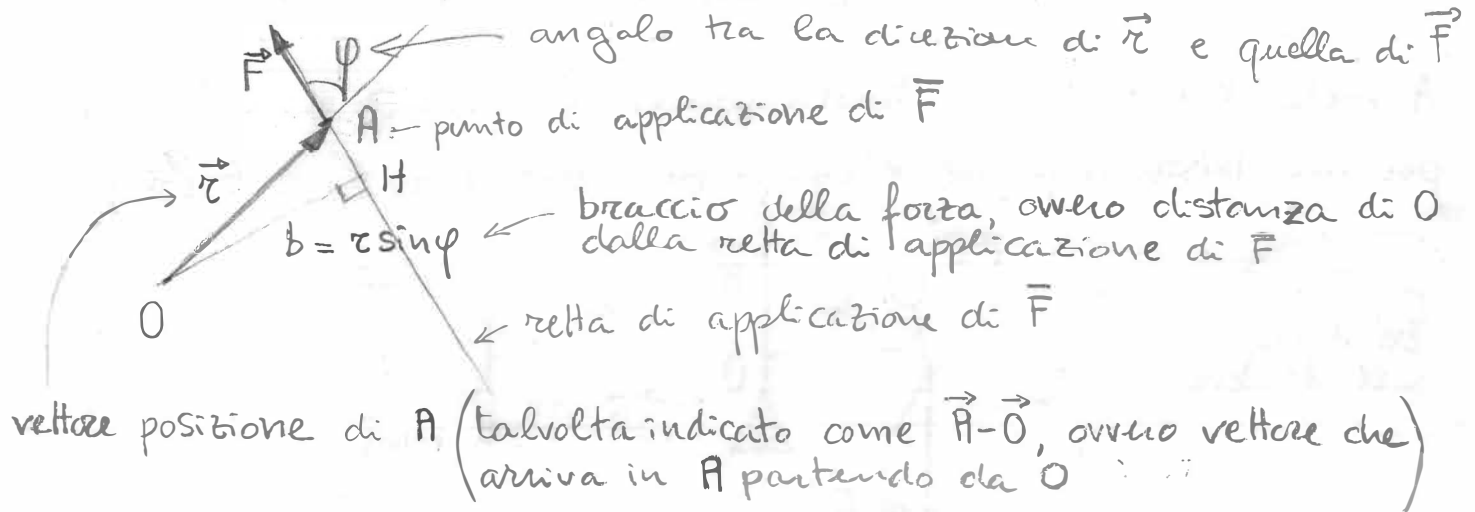 F⃗ φ angolo tra la direzione di r⃗ e quella di F⃗
A punto di applicazione di F̅
r⃗ H
b = r sinφ braccio della forza, ovvero distanza di O
dalla retta di applicazione di F̅
O retta di applicazione di F̅
vettore posizione di A (talvolta indicato come A⃗-O⃗, ovvero vettore che
arriva in A partendo da O)